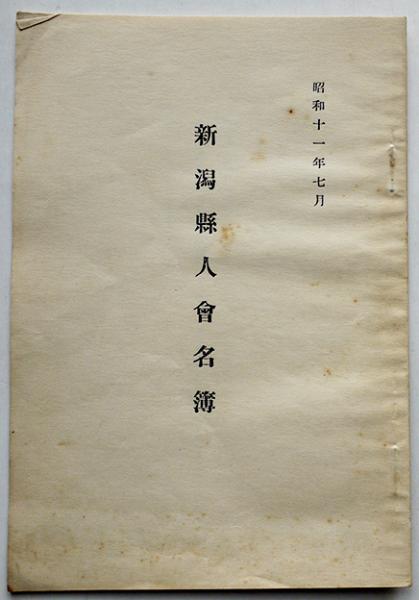 昭和十一年七月
新潟縣人會名簿